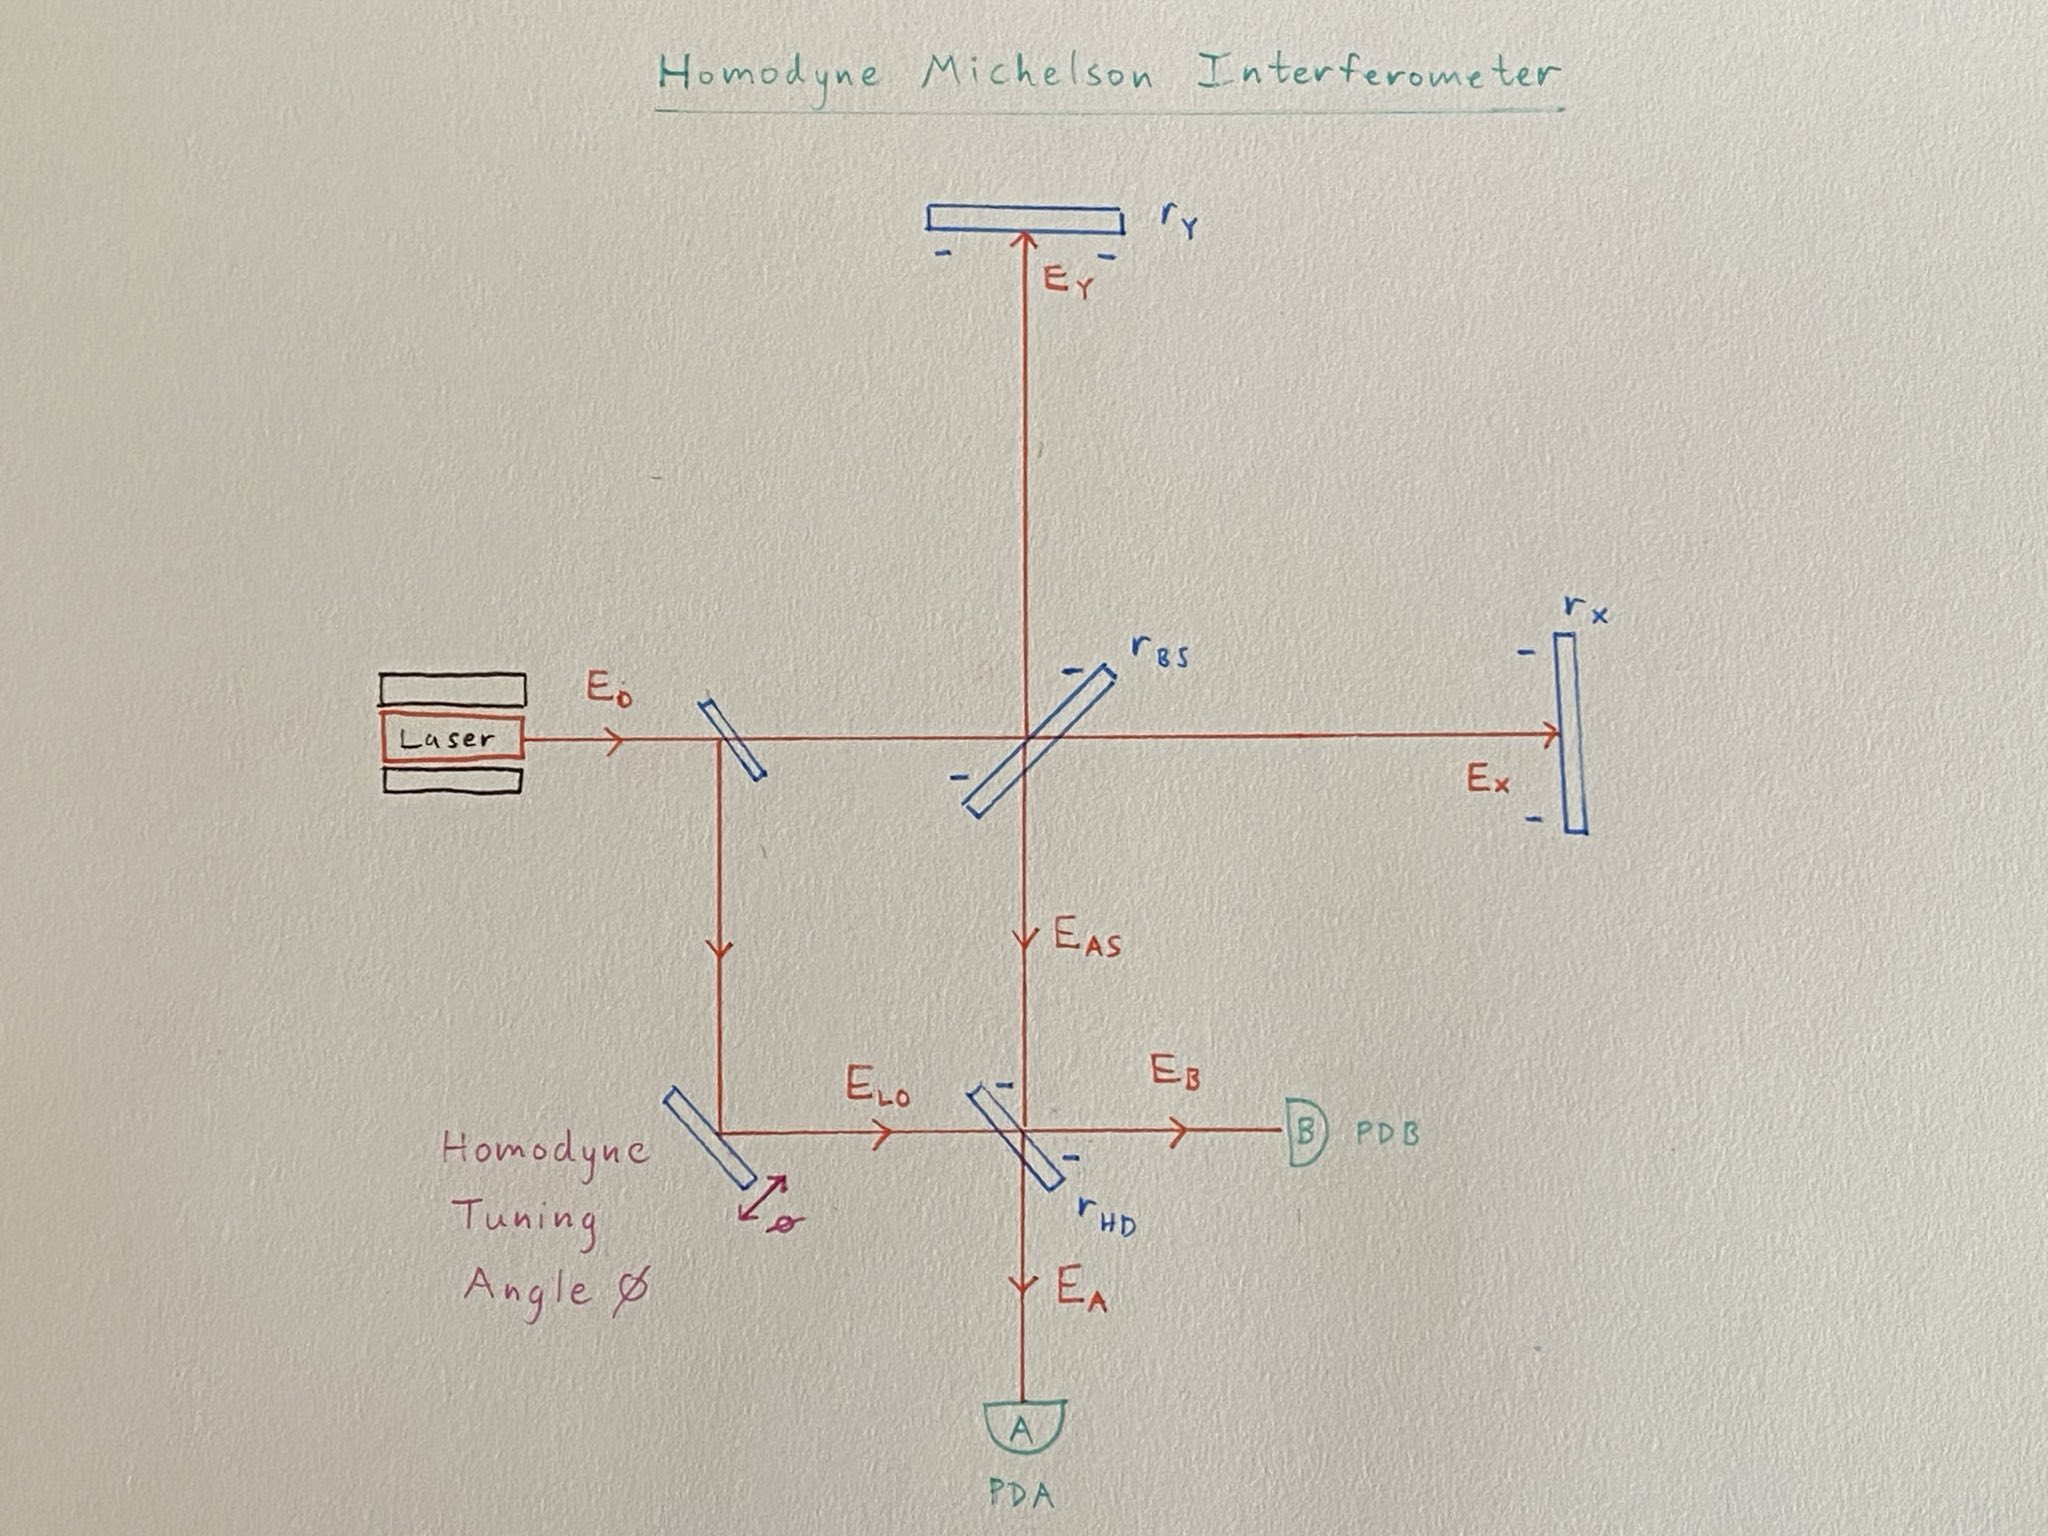 Homodyne Michelson Interferometer
r_Y
-
-
E_Y
r_X
-
r_BS
-
E_0
Laser
-
E_X
-
E_AS
E_LO
-
E_B
B
PDB
-
Homodyne
Tuning
Angle ϕ
ϕ
r_HD
E_A
A
PDA